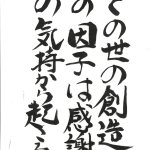 の世の創造
の因子は感謝
の気持から起こ